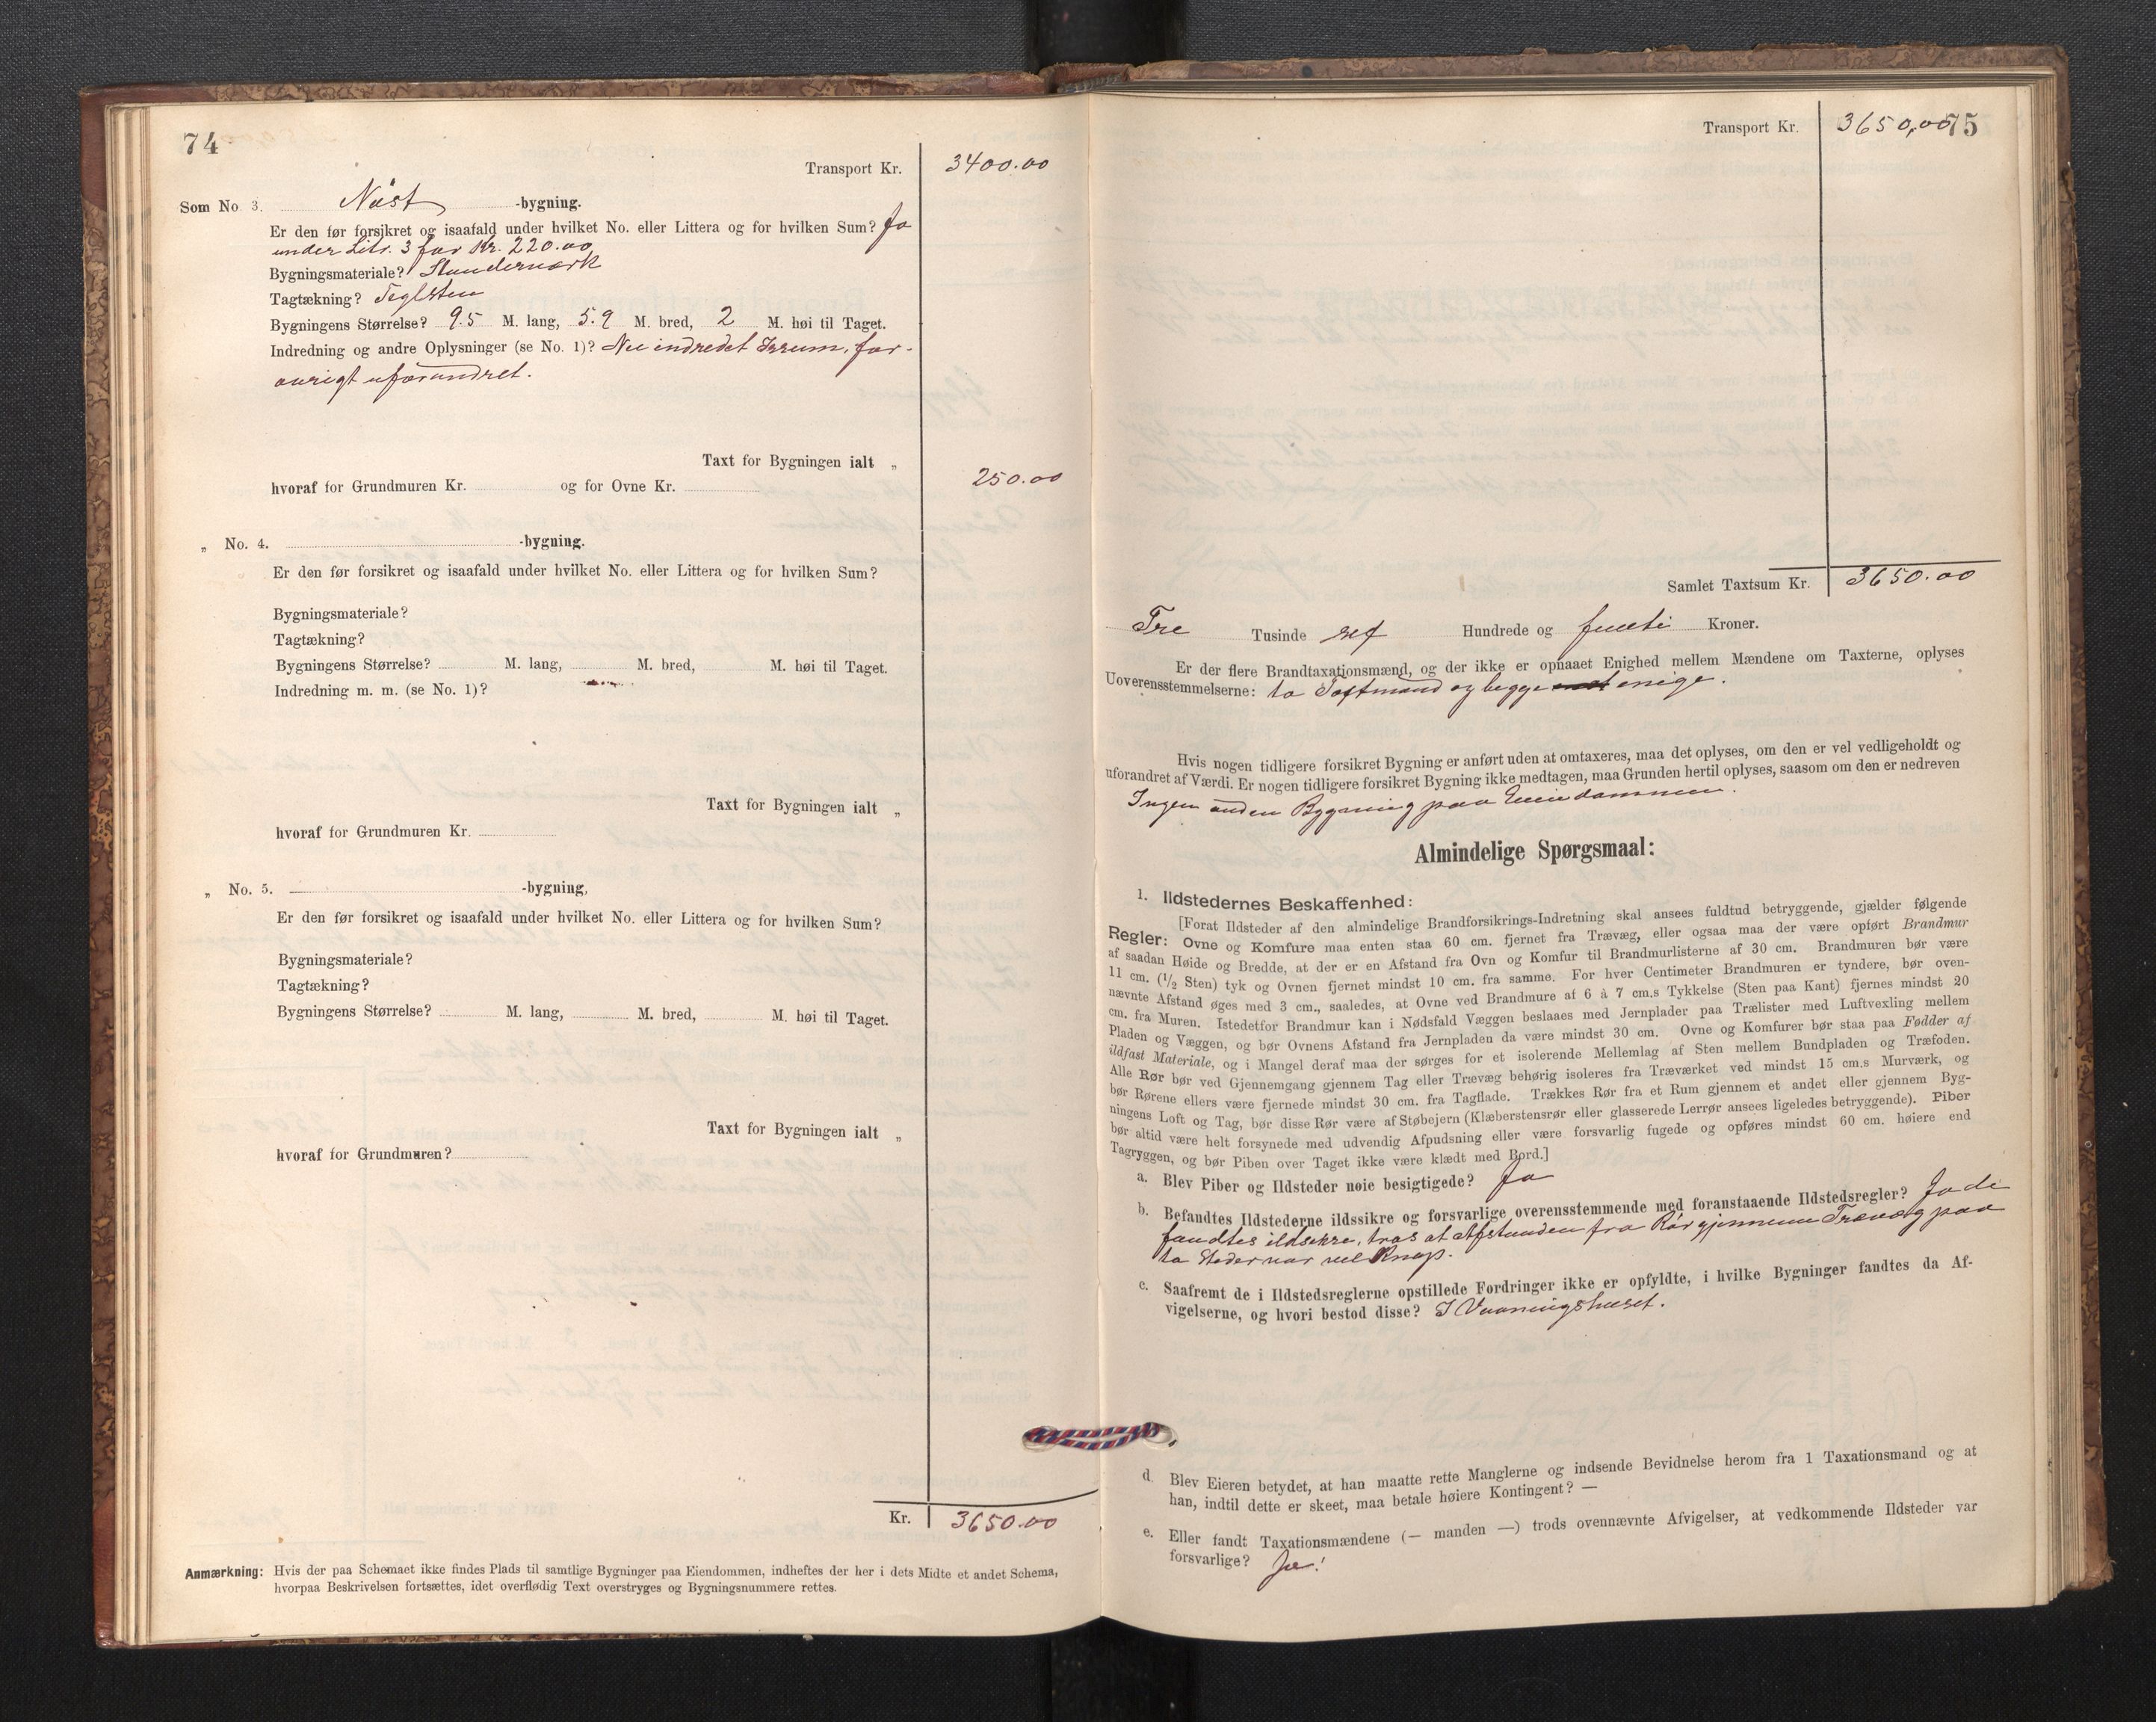 74
Transport Kr. 3400.00
Som No. 3. Nöst -bygning.
Er den før forsikret og isaafald under hvilket No. eller Littera og for hvilken Sum? Ja
under Litr. 3 for Kr. 220.00
Bygningsmateriale? Standerverk
Tagtækning? Teglsten
Bygningens Størrelse? 9.5 M. lang, 5.9 M. bred, 2 M. høi til Taget.
Indredning og andre Oplysninger (se No. 1)? Nu indredet 3 rum, for-
øvrigt uforandret.
Taxt for Bygningen ialt „ 250.00
hvoraf for Grundmuren Kr. og for Ovne Kr.
„ No. 4. -bygning.
Er den før forsikret og isaafald under hvilket No. eller Littera og for hvilken Sum?
Bygningsmateriale?
Tagtækning?
Bygningens Størrelse? M. lang, M. bred, M. høi til Taget.
Indredning m. m. (se No. 1)?
Taxt for Bygningen ialt „
hvoraf for Grundmuren Kr.
„ No. 5. -bygning,
Er den før forsikret og isaafald under hvilket No. eller Littera og for hvilken Sum?
Bygningsmateriale?
Tagtækning?
Bygningens Størrelse? M. lang, M. bred, M. høi til Taget.
Taxt for Bygningen ialt „
hvoraf for Grundmuren?
Kr. 3650.00
Anmærkning: Hvis der paa Schemaet ikke findes Plads til samtlige Bygninger paa Eiendommen, indheftes der her i dets Midte et andet Schema,
hvorpaa Beskrivelsen fortsættes, idet overflødig Text overstryges og Bygningsnummere rettes.
Transport Kr. 3650,00 75
Samlet Taxtsum Kr. 3650.00
Tre Tusinde sex Hundrede og femti Kroner.
Er der flere Brandtaxationsmænd, og der ikke er opnaaet Enighed mellem Mændene om Taxterne, oplyses
Uoverensstemmelserne: to Taxtmænd og begge enige.
Hvis nogen tidligere forsikret Bygning er anført uden at omtaxeres, maa det oplyses, om den er vel vedligeholdt og
uforandret af Værdi. Er nogen tidligere forsikret Bygning ikke medtagen, maa Grunden hertil oplyses, saasom om den er nedreven
Ingen anden Bygning paa Eiendommen.
Almindelige Spørgsmaal:
1. Ildstedernes Beskaffenhed:
[Forat Ildsteder af den almindelige Brandforsikrings-Indretning skal ansees fuldtud betryggende, gjælder følgende
Regler: Ovne og Komfure maa enten staa 60 cm. fjernet fra Trævæg, eller ogsaa maa der være opført Brandmur
af saadan Høide og Bredde, at der er en Afstand fra Ovn og Komfur til Brandmurlisterne af 30 cm. Brandmuren bør være
11 cm. (1/2 Sten) tyk og Ovnen fjernet mindst 10 cm. fra samme. For hver Centimeter Brandmuren er tyndere, bør oven-
nævnte Afstand øges med 3 cm., saaledes, at Ovne ved Brandmure af 6 à 7 cm.s Tykkelse (Sten paa Kant) fjernes mindst 20
cm. fra Muren. Istedetfor Brandmur kan i Nødsfald Væggen beslaaes med Jernplader paa Trælister med Luftvexling mellem
Pladen og Væggen, og bør Ovnens Afstand fra Jernpladen da være mindst 30 cm. Ovne og Komfurer bør staa paa Fødder af
ildfast Materiale, og i Mangel deraf maa der sørges for et isolerende Mellemlag af Sten mellem Bundpladen og Træfoden.
Alle Rør bør ved Gjennemgang gjennem Tag eller Trævæg behørig isoleres fra Træværket ved mindst 15 cm.s Murværk, og
bør Rørene ellers være fjernede mindst 30 cm. fra Tagflade. Trækkes Rør fra et Rum gjennem et andet eller gjennem Byg-
ningens Loft og Tag, bør disse Rør være af Støbejern (Klæberstensrør eller glasserede Lerrør ansees ligeledes betryggende). Piber
bør altid være helt forsynede med udvendig Afpudsning eller være forsvarlig fugede og opføres mindst 60 cm. høiere end
Tagryggen, og bør Piben over Taget ikke være klædt med Bord.]
a. Blev Piber og Ildsteder nøie besigtigede? Ja
b. Befandtes Ildstederne ildssikre og forsvarlige overensstemmende med foranstaaende Ildstedsregler? Ja de
fandtes ildsikre, tros at Afstanden fra Rør gjennem Trævæg paa
to Steder var vel knap.
c. Saafremt de i Ildstedsreglerne opstillede Fordringer ikke er opfyldte, i hvilke Bygninger fandtes da Af-
vigelserne, og hvori bestod disse? I Vaaningshuset.
d. Blev Eieren betydet, at han maatte rette Manglerne og indsende Bevidnelse herom fra 1 Taxationsmand og at
han, indtil dette er skeet, maa betale høiere Kontingent? —
e. Eller fandt Taxationsmændene (— manden —) trods ovennævnte Afvigelser, at vedkommende Ildsteder var
forsvarlige? Ja!